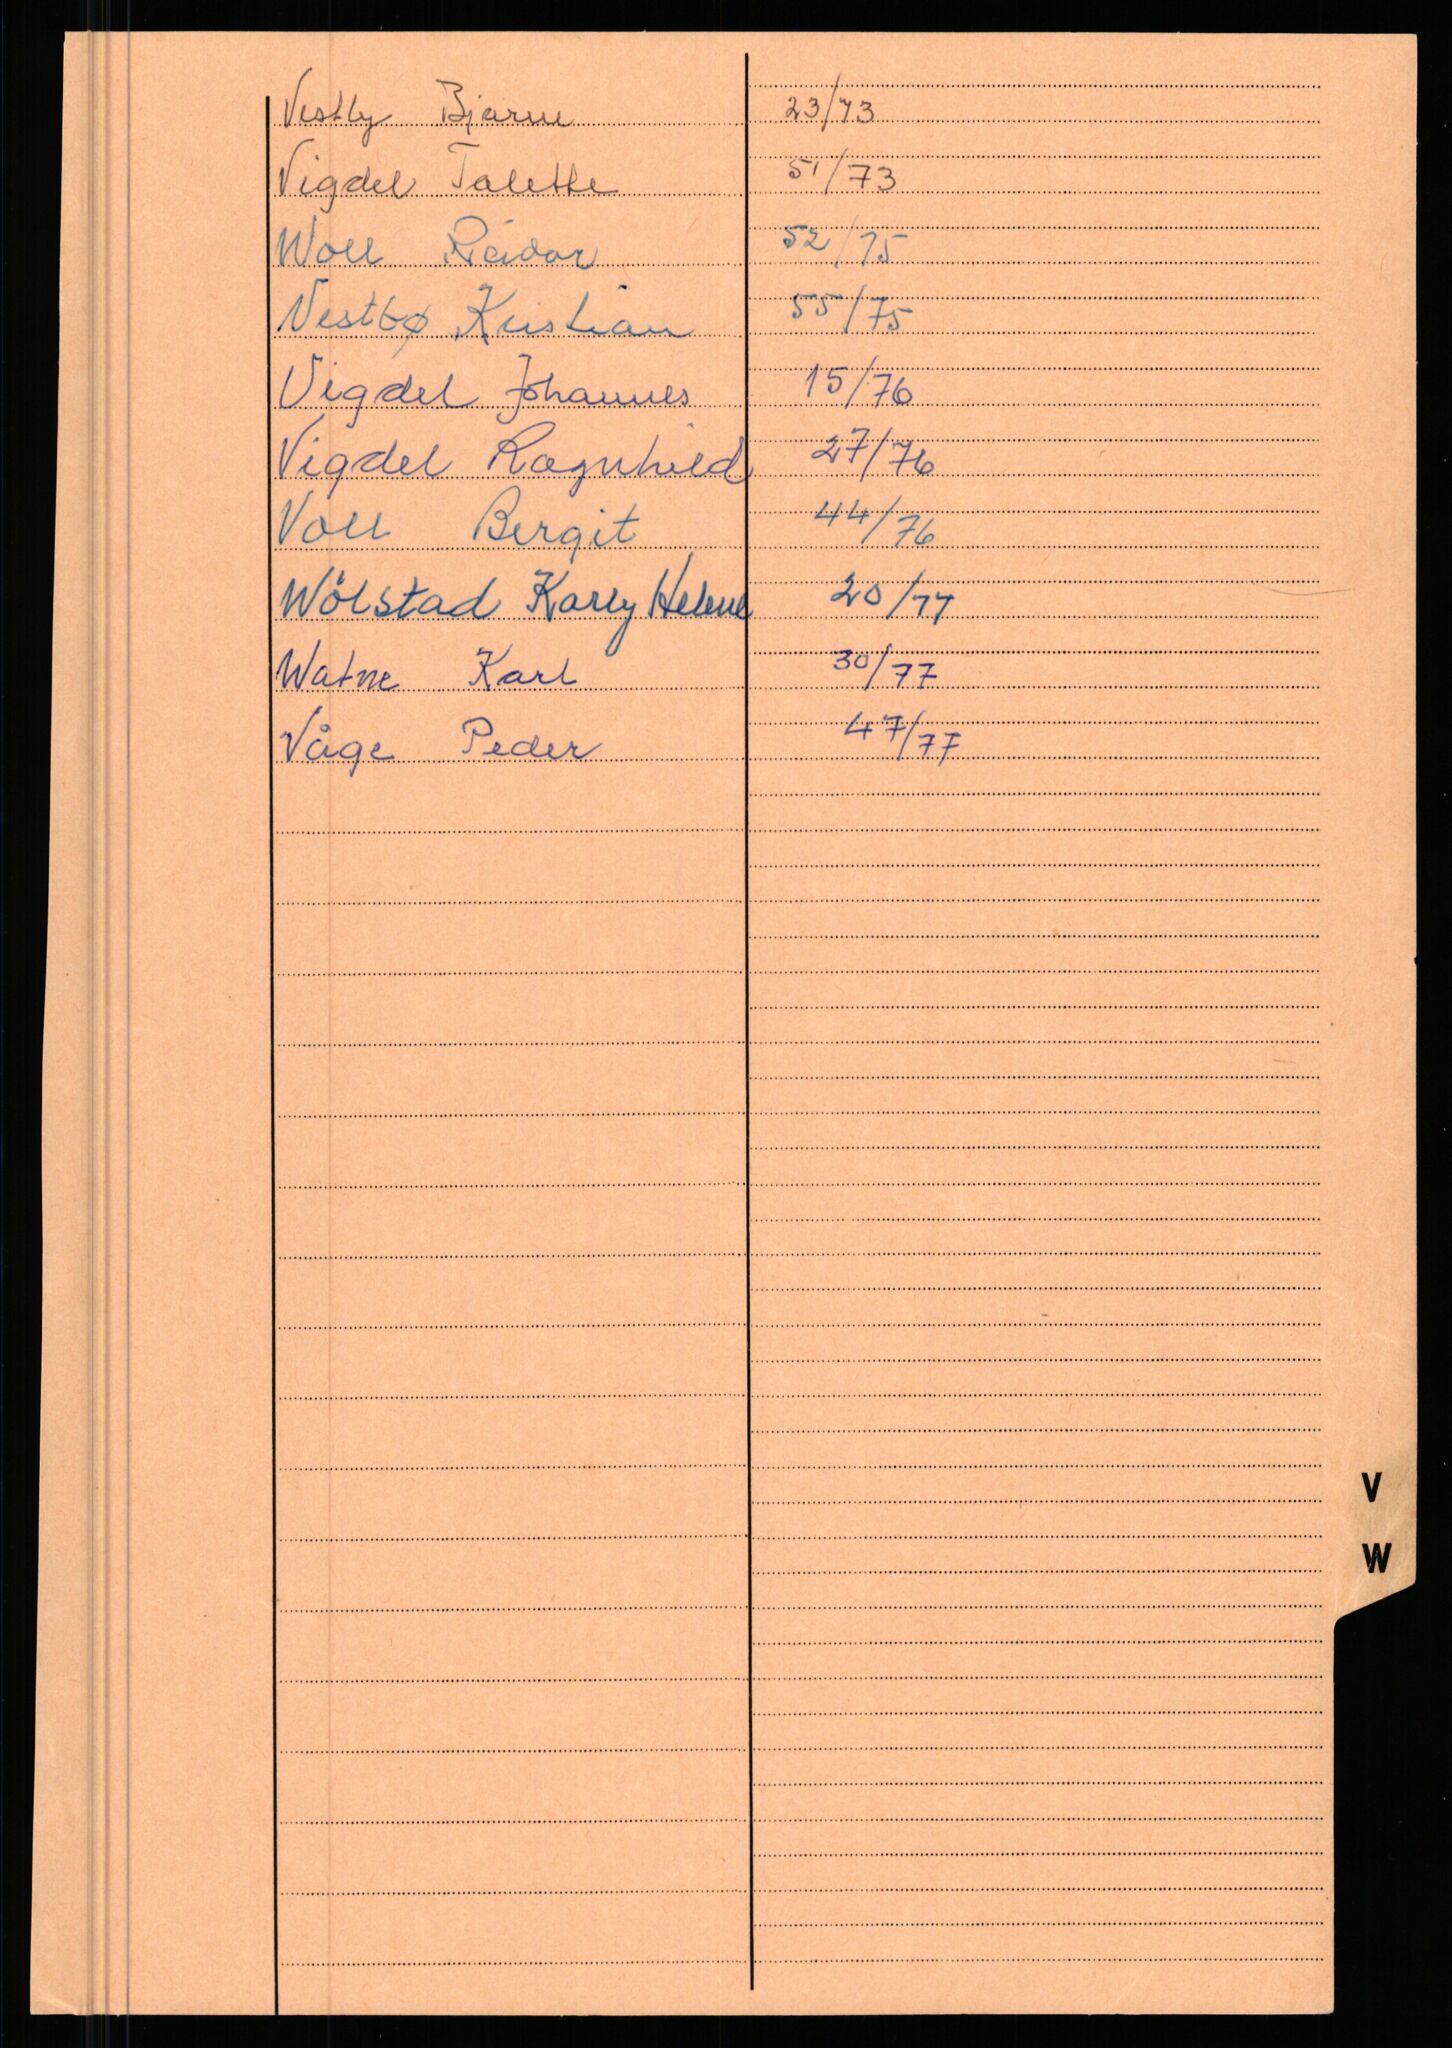 Vestly Bjarne 23/73
Vigdel Talette 51/73
Woll Reidar 52/75
Vestbø Kristian 55/75
Vigdel Johannes 15/76
Vigdel Ragnhild 27/76
Voll Bergit 44/76
Wölstad Karly Helene 20/77
Watne Karl 30/77
Våge Peder 47/77
V
W